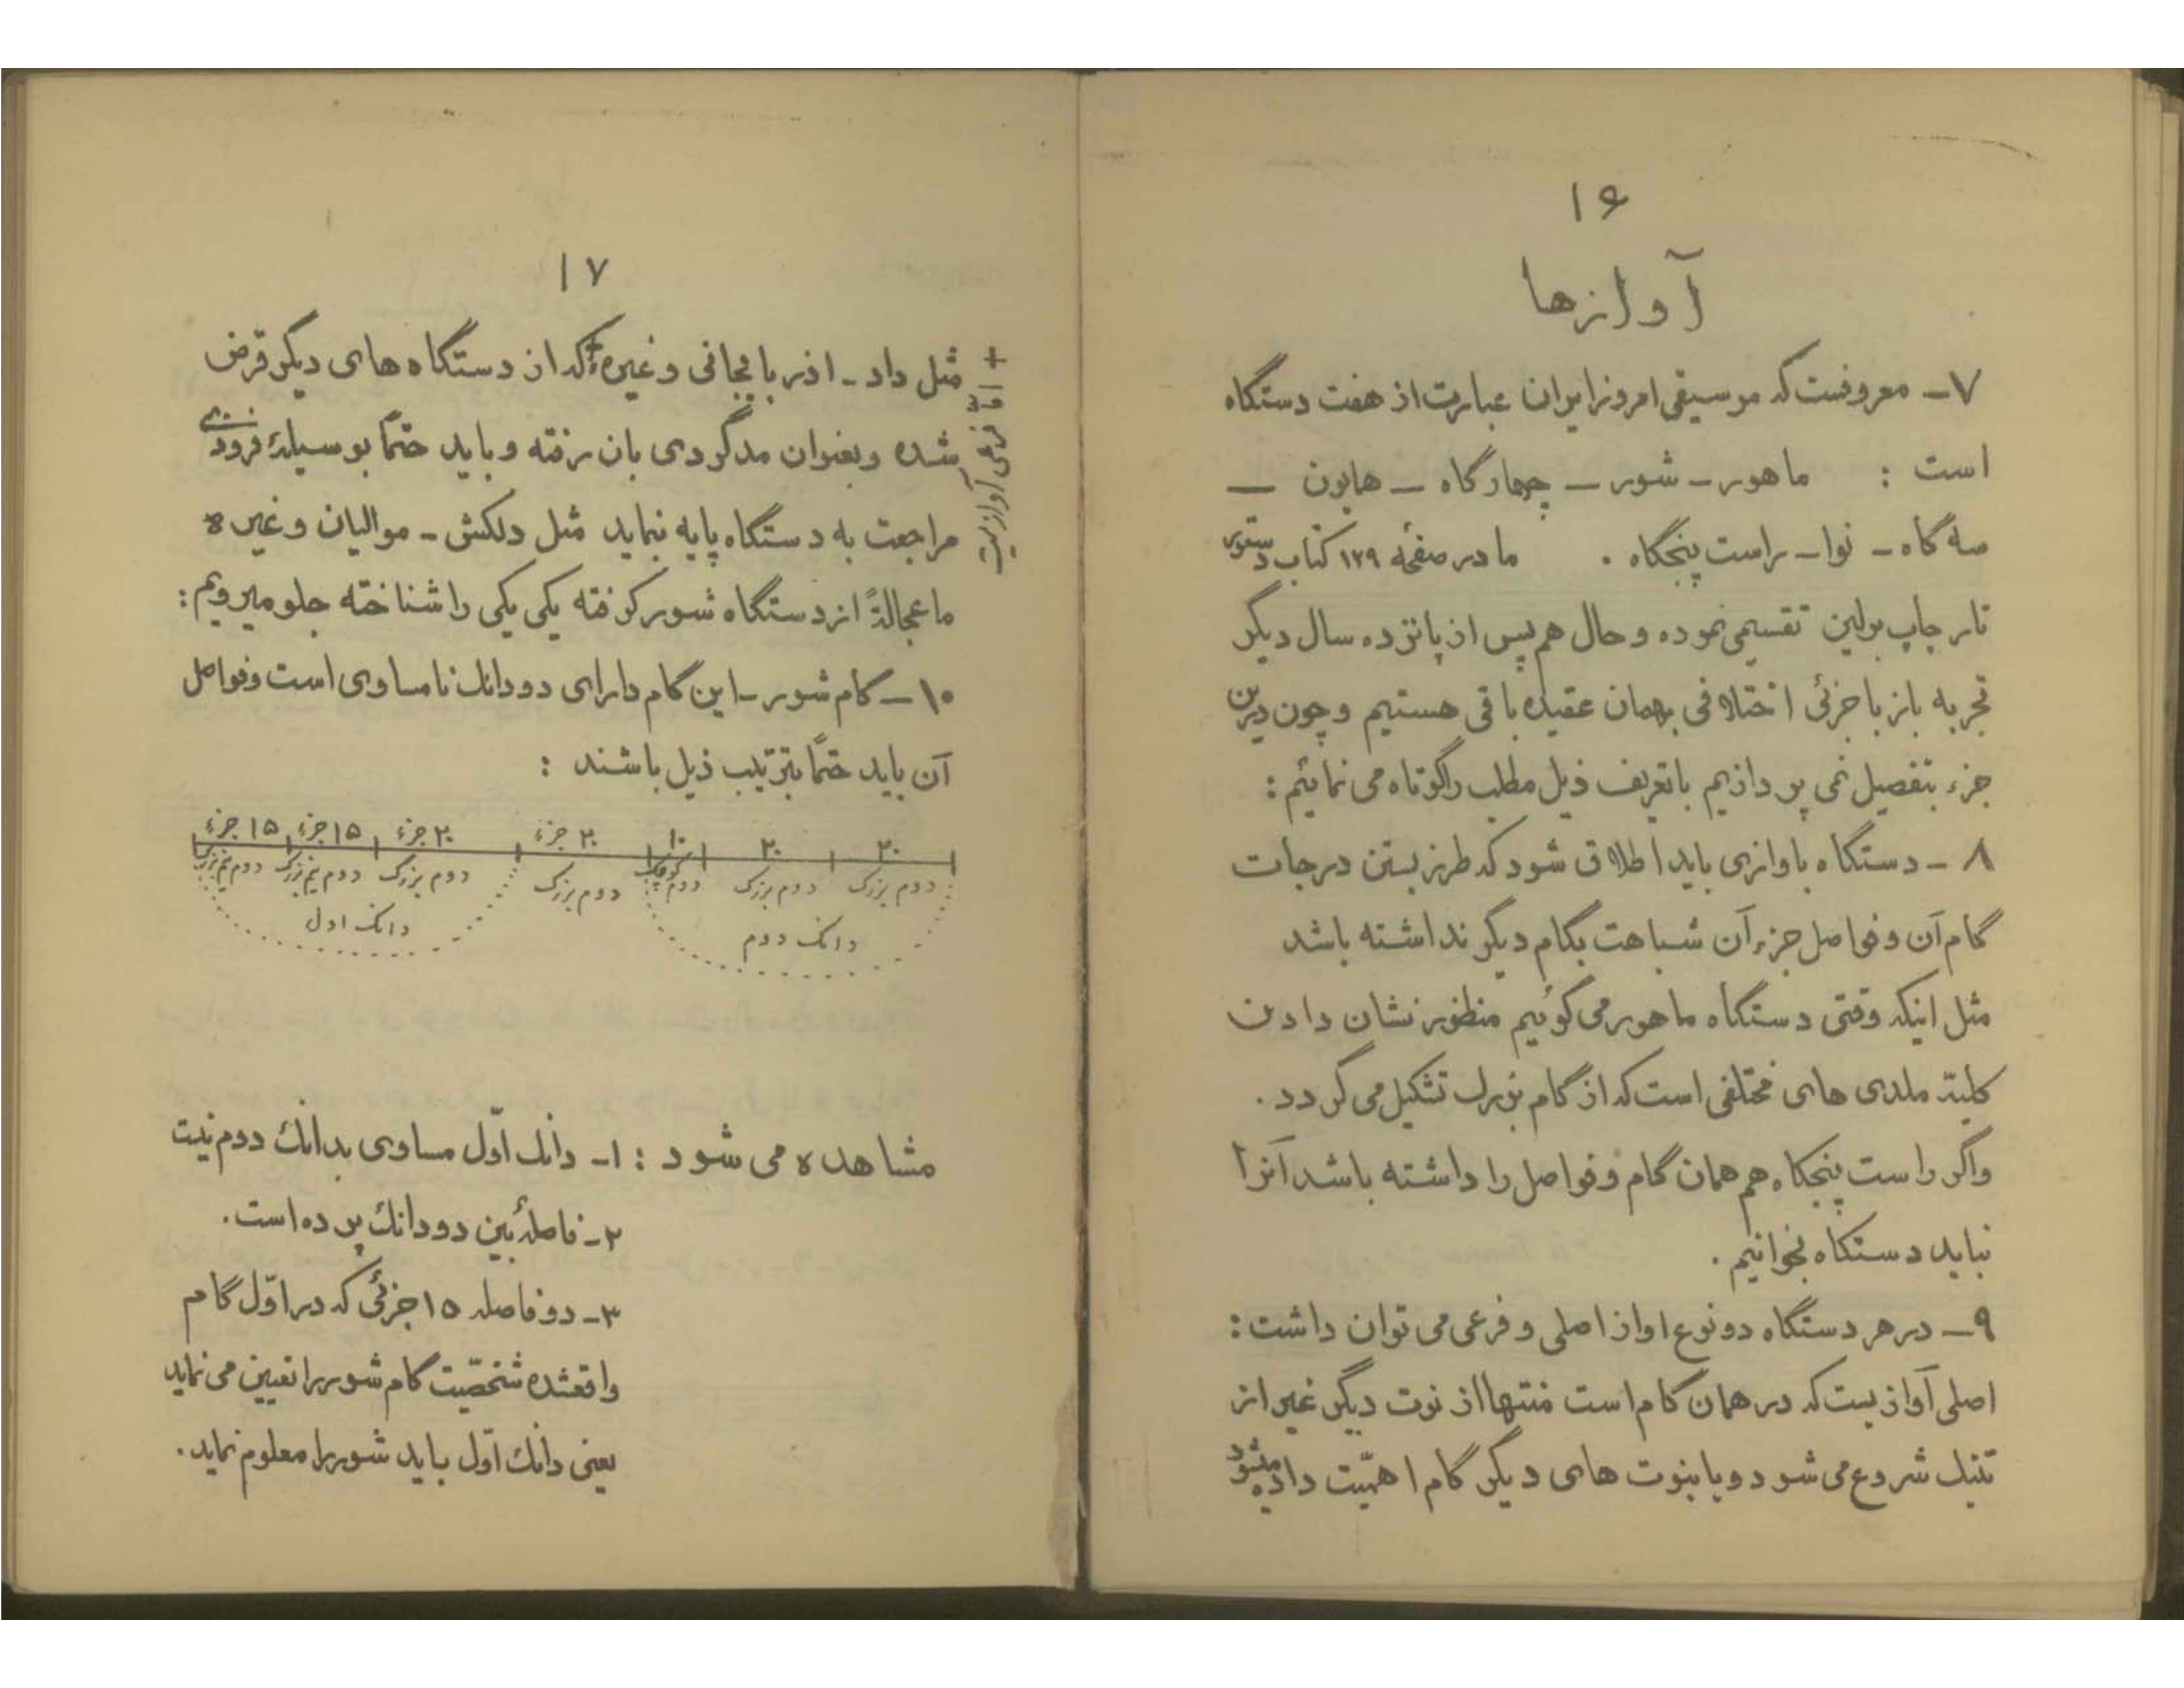 ۱۶
آوازها
۷ـ معروفست که موسیقی امروز ایران عبارت از هفت دستگاه
است : ماهور ـ شور ـ چهارگاه ـ همایون ـ
سه گاه ـ نوا ـ راست پنجگاه . ما در صفحه ۱۲۹ کتاب دستور
تار چاپ برلین تقسیمی نموده و حال هم پس از پانزده سال دیگر
تجربه باز با جزئی اختلافی بهمان عقیده باقی هستیم و چون درین
جزء بتفصیل نمی پردازیم با تعریف ذیل مطلب را کوتاه می نمائیم :
۸ ـ دستگاه باوازی باید اطلاق شود که طرز بستن درجات
گام آن و فواصل جزء آن شباهت بگام دیگر نداشته باشد
مثل اینکه وقتی دستگاه ماهور می گوئیم منظور نشان دادن
کلیّه ملدی های مختلفی است که از گام بزرگ تشکیل می گردد .
واگر راست پنجگاه هم همان گام و فواصل را داشته باشد آنرا
نباید دستگاه بخوانیم .
۹ـ در هر دستگاه دو نوع اواز اصلی و فرعی می توان داشت :
اصلی آوازیست که در همان گام است منتها از نوت دیگر غیر از
تنیک شروع می شود و یا بنوت های دیگر گام اهمّیت داده میشود
۱۷
مثل داد ـ اذربایجانی و غیره + که از دستگاه های دیگر قرض
شده و بعنوان مدگردی بان رفته و باید حتماً بوسیلهٔ فرودی
مراجعت به دستگاه پایه نماید مثل دلکش ـ موالیان و غیره
ما عجالةً از دستگاه شور گرفته یکی یکی را شناخته جلو میرویم :
+ فرعی آوازیست
۱۰ـ گام شور ـ این گام دارای دو دانگ نامساوی است و فواصل
آن باید حتماً بترتیب ذیل باشند :
۱۵ جزء ۱۵ جزء ۲۰ جزء ۲۰ جزء ۱۰ ۲۰ ۲۰
دوم نیم بزرگ دوم نیم بزرگ دوم بزرگ دوم بزرگ دوم کوچک دوم بزرگ دوم بزرگ
دانگ اول دانگ دوم
مشاهده می شود : ۱ـ دانگ اوّل مساوی بدانگ دوم نیست
۲ـ فاصلهٔ بین دو دانگ پرده است .
۳ـ دو فاصله ۱۵ جزئی که در اوّل گام
واقعشده شخصّیت گام شور را تعیین می نماید
یعنی دانگ اوّل باید شور را معلوم نماید .